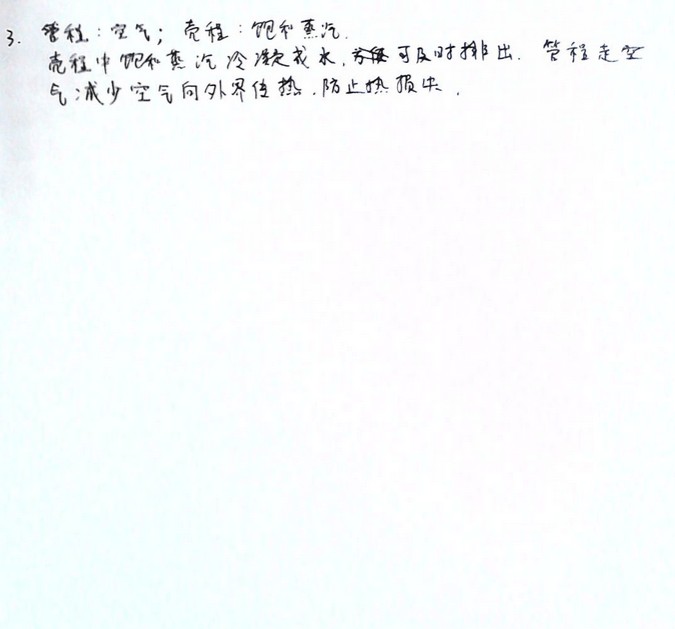 3. 管程：空气；壳程：饱和蒸汽.
壳程中饱和蒸汽冷凝成水，可及时排出. 管程走空
气：减少空气向外界传热，防止热损失.